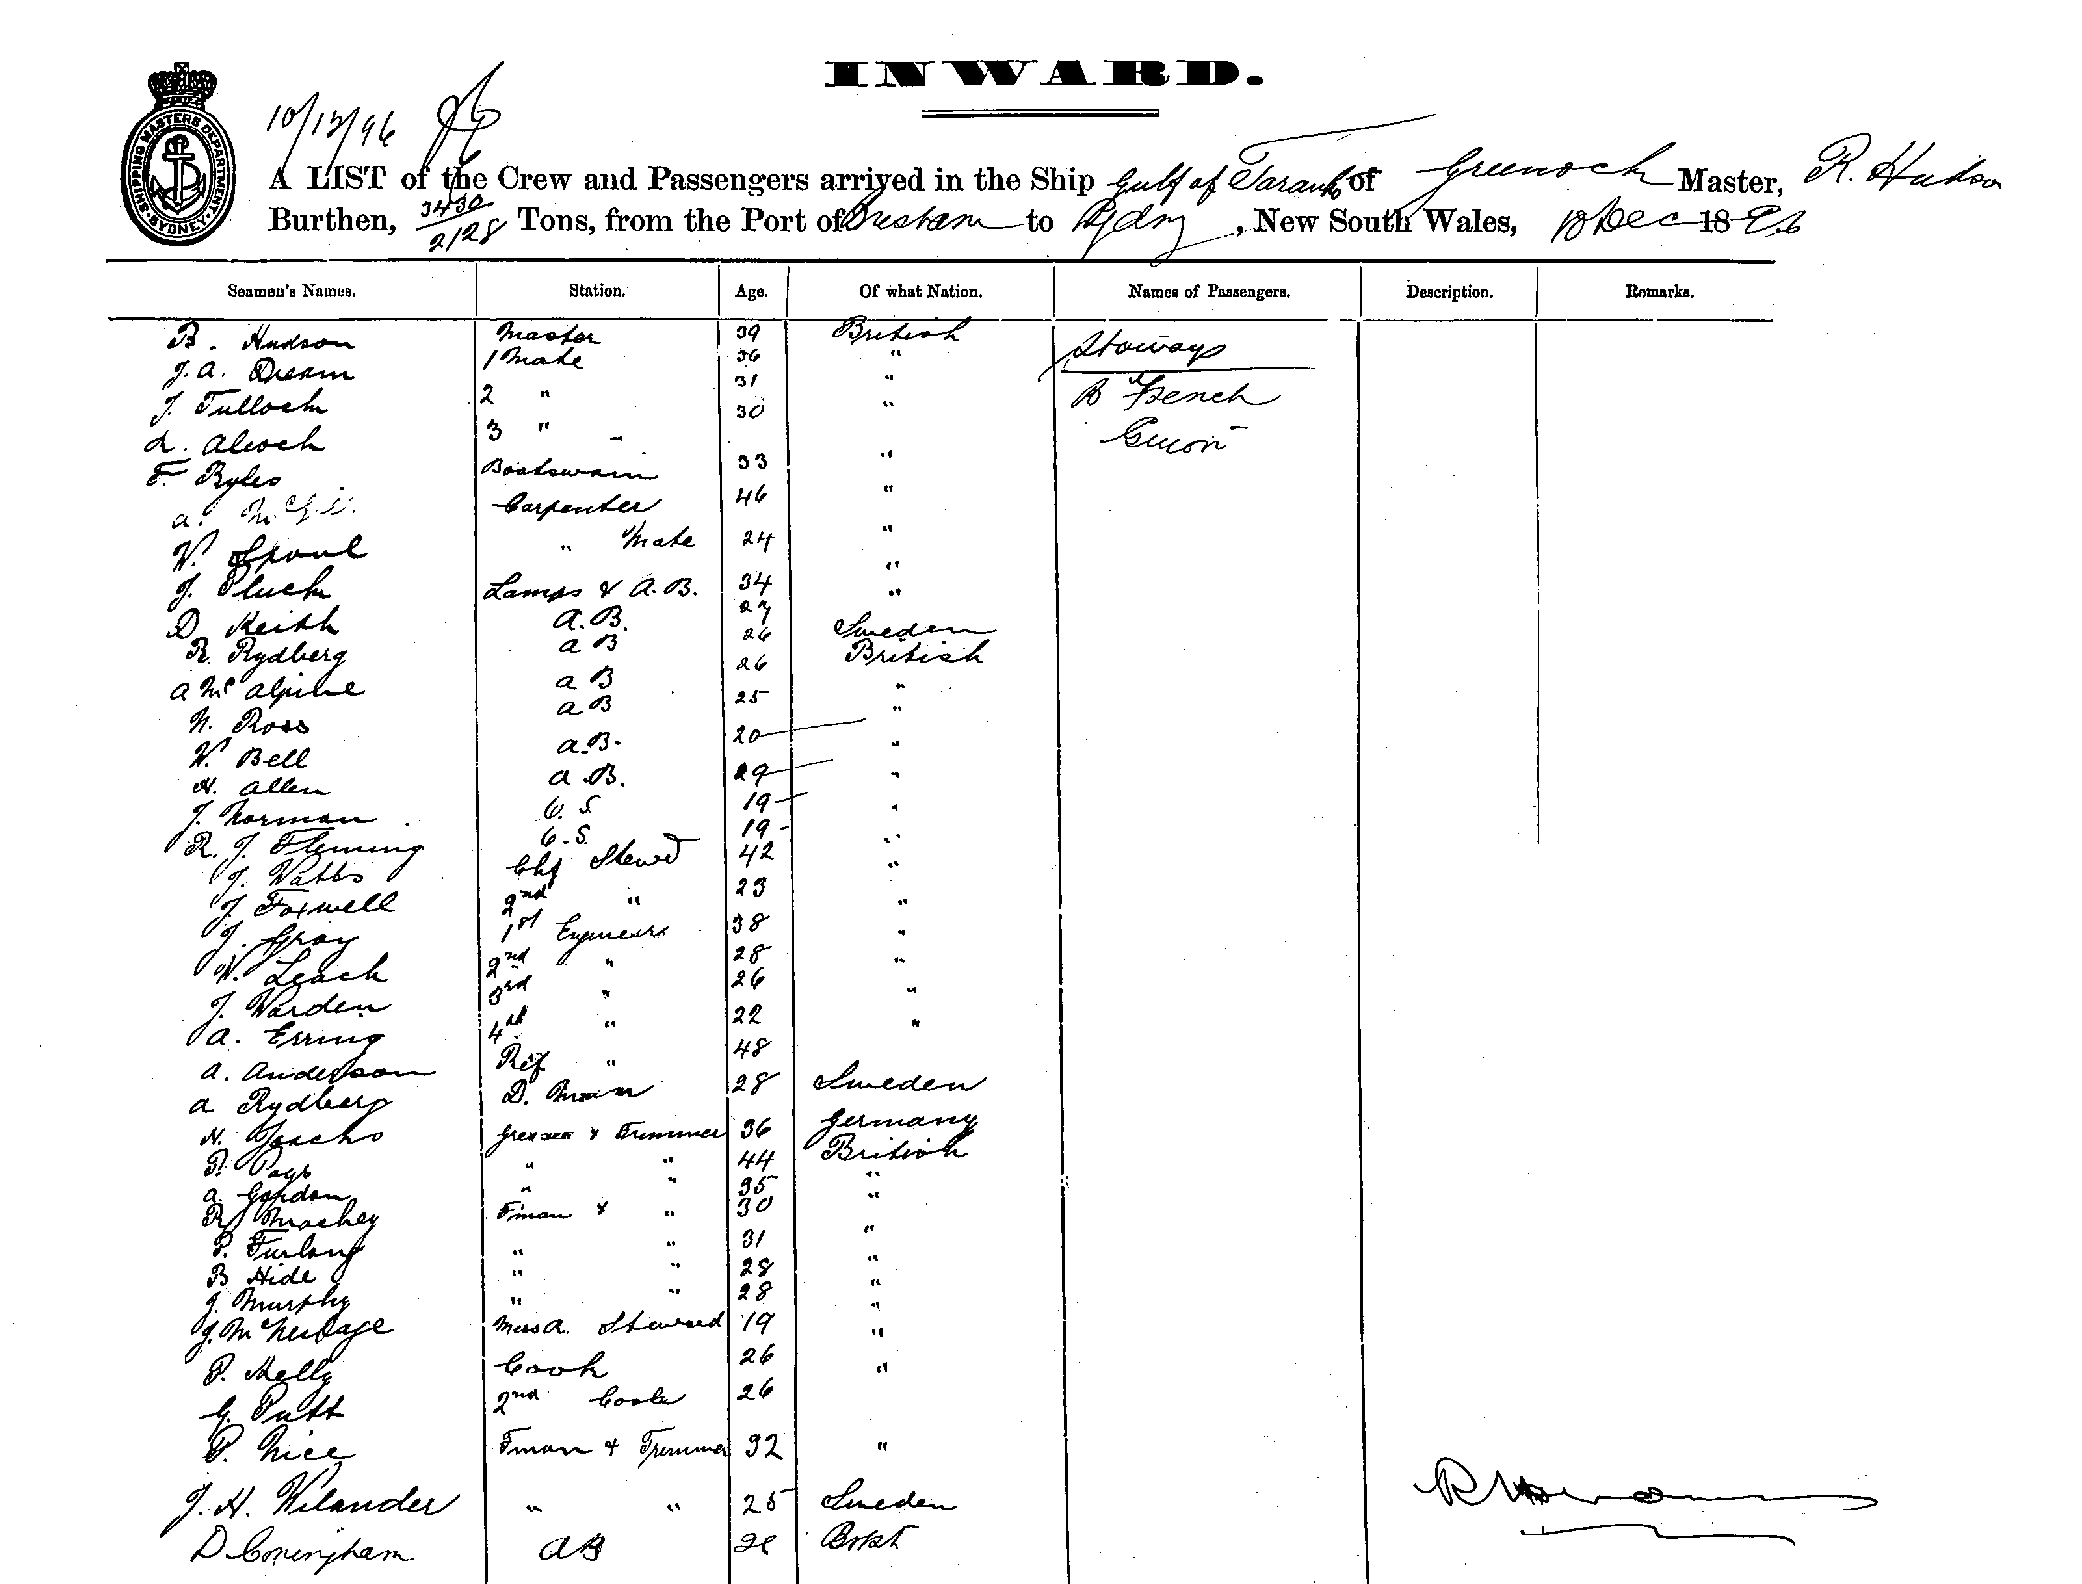 INWARD.
10/12/96
SHIPPING MASTERS DEPARTMENT SYDNEY
A LIST of the Crew and Passengers arrived in the Ship Gulf of Taranto of Greenock Master, R. Hudson
Burthen, 3430/2128 Tons, from the Port of to Sydney, New South Wales, 10 Dec 1896
Seamen's Names. Station. Age. Of what Nation. Names of Passengers. Description. Remarks.
R. Hudson Master 39 British Stoways
J. A. 1 Mate 36 "
J. Tulloch 2 " 31 " B French
L. Alcock 3 " 30 "
F. Ryles Boatswain 33 "
A. Carpenter 46 "
W. " Mate 24 "
J. Pluck Lamps & A.B. 34 "
D Keith A.B. 27 "
R. Rydberg A B 26 Sweden
A McAlpine A B 26 British
N. Ross A B 25 "
W. Bell A.B. 20 "
H. Allen A.B. 29 "
J. Norman O.S. 19 "
R. J. Fleming O.S. 19 "
J. Watts Chf Stewd 42 "
J Foxwell 2nd " 23 "
J. Gray 1st Engineers 38 "
W. Leach 2nd " 28 "
J. Warden 3rd " 26 "
A. Erring 4th " 22 "
A. Anderson Ref " 48 "
A Rydberg D. Man 28 Sweden
H. Greaser & Trimmer 36 Germany
P. " " 44 British
A. Gordon " " 35 "
R. Mackey Fman & " 30 "
P. Furlong " " 31 "
B Hide " " 28 "
J. Murphy " " 28 "
J. Mess R. Steward 19 "
P. Melly Cook 26 "
G. Putt 2nd Cook 26 "
P. Nice Fman & Trimmer 32 "
J. H. Wilander " " 25 Sweden
D Coningham AB